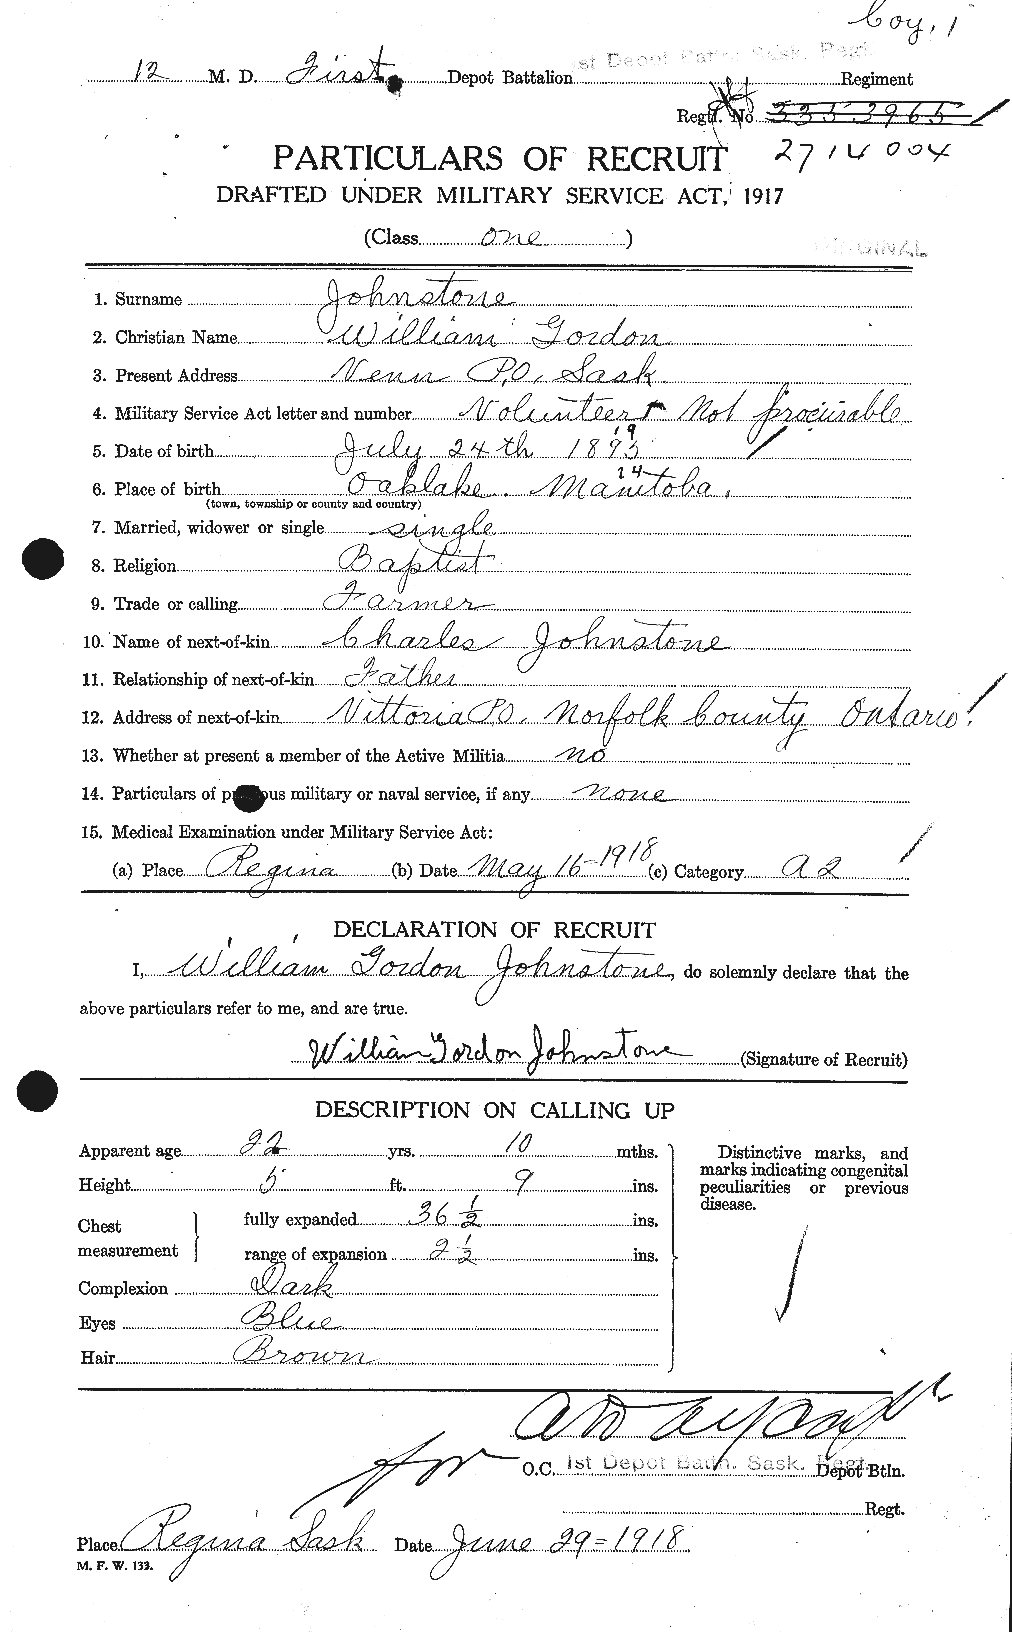 Coy, 1
1st Depot Battn. Sask. Regt.
12 M. D. First Depot Battalion Regiment
Regtl. No 3353965
2714004
PARTICULARS OF RECRUIT
DRAFTED UNDER MILITARY SERVICE ACT, 1917
(Class one )
ORIGINAL
1. Surname Johnstone
2. Christian Name William Gordon
3. Present Address Venn P.O. Sask
4. Military Service Act letter and number Volunteer Not procurable
19
5. Date of birth July 24th 1893
24
6. Place of birth Oaklake. Manitoba.
(town, township or county and country)
7. Married, widower or single single
8. Religion Baptist
9. Trade or calling Farmer
10. Name of next-of-kin Charles Johnstone
11. Relationship of next-of-kin Father
12. Address of next-of-kin Vittoria P.O. Norfolk County Ontario.
13. Whether at present a member of the Active Militia no
14. Particulars of previous military or naval service, if any none
15. Medical Examination under Military Service Act:
(a) Place Regina (b) Date May 16-1918 (c) Category A 2
DECLARATION OF RECRUIT
I, William Gordon Johnstone, do solemnly declare that the
above particulars refer to me, and are true.
William Gordon Johnstone (Signature of Recruit)
DESCRIPTION ON CALLING UP
Apparent age 22 yrs. 10 mths.
Height 5 ft. 9 ins.
Chest measurement fully expanded 36 1/2 ins.
range of expansion 2 1/2 ins.
Complexion Dark
Eyes Blue
Hair Brown
Distinctive marks, and
marks indicating congenital
peculiarities or previous
disease.
for
O.C. 1st Depot Battn. Sask. Regt. Depot Btln.
Regt.
Place Regina Sask Date June 29=1918
M. F. W. 133.